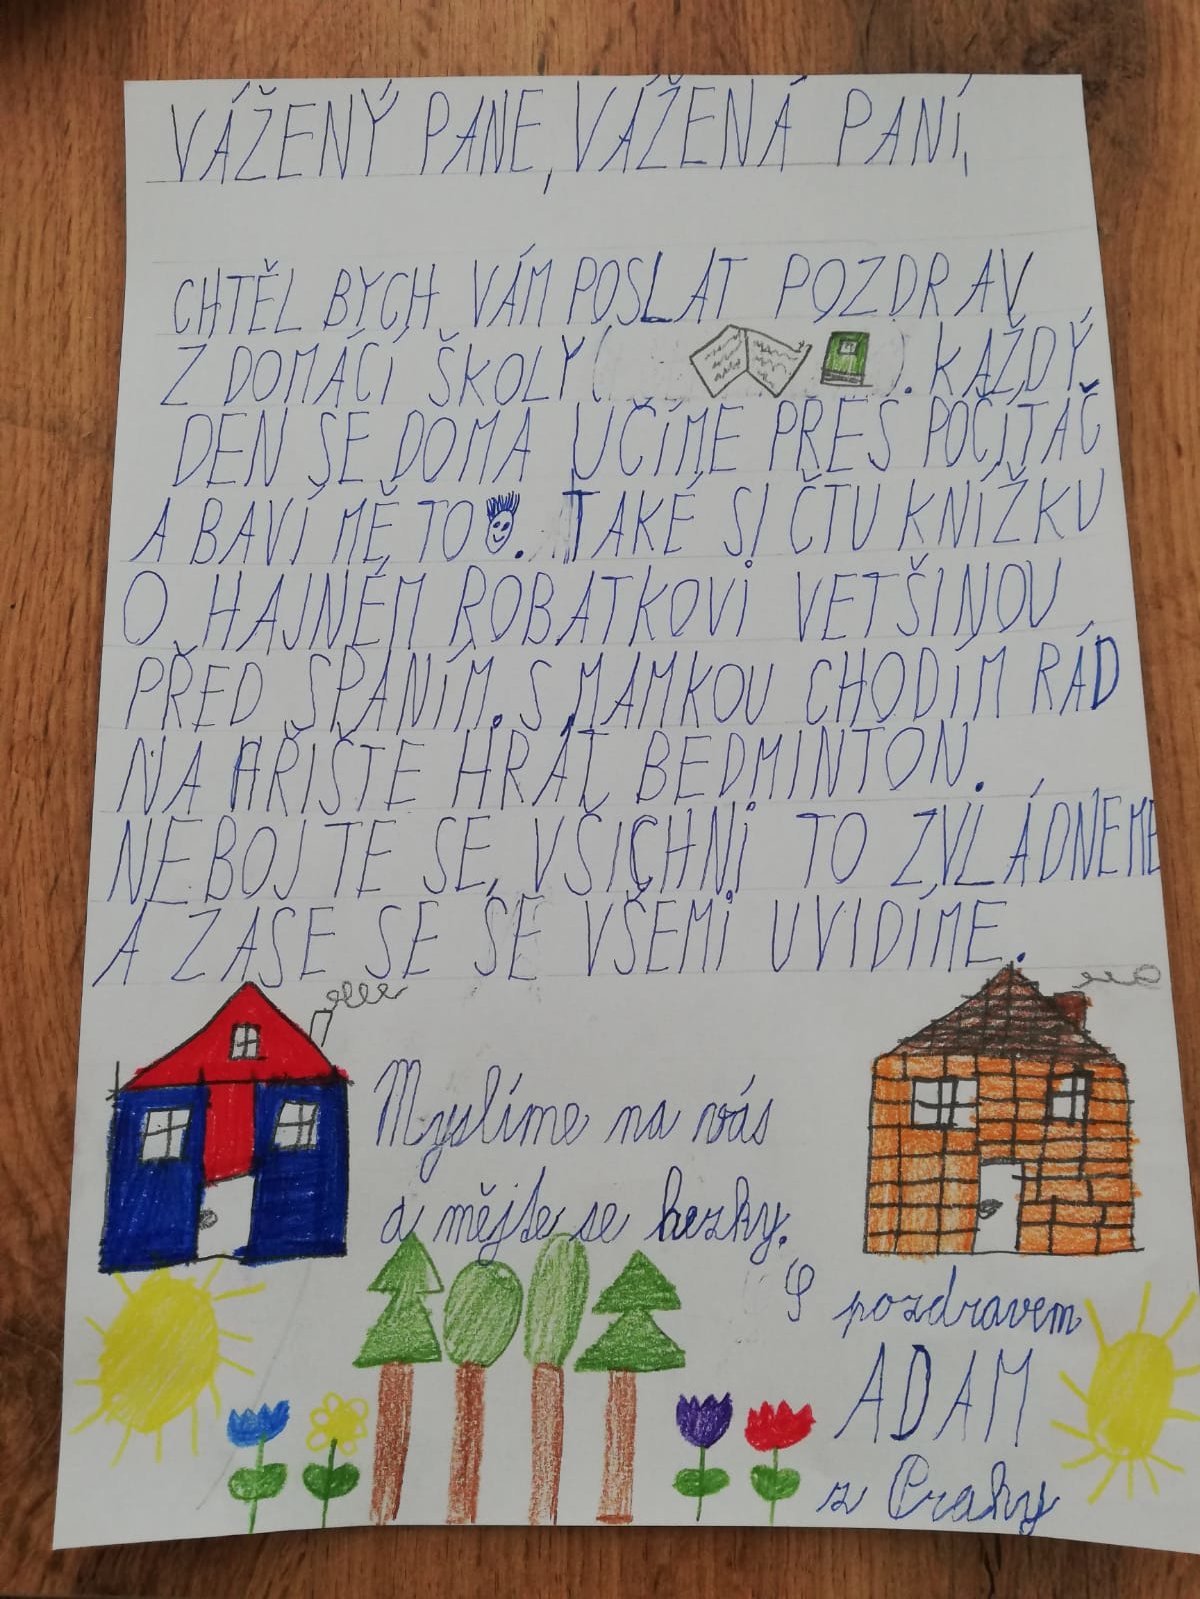 VÁŽENÝ PANE, VÁŽENÁ PANÍ,
CHTĚL BYCH VÁM POSLAT POZDRAV
Z DOMÁCÍ ŠKOLY ( ). KAŽDÝ
DEN SE DOMA UČÍME PŘES POČÍTAČ
A BAVÍ MĚ TO . TAKÉ SI ČTU KNÍŽKU
O HAJNÉM ROBATKOVI VETŠINOU
PŘED SPANÍM. S MAMKOU CHODÍM RÁD
NA HŘIŠTE HRÁT BEDMINTON.
NEBOJTE SE, VŠICHNI TO ZVLÁDNEME
A ZASE SE SE VŠEMI UVIDÍME.
Myslíme na vás
a mějte se hezky.
S pozdravem
ADAM
z Prahy